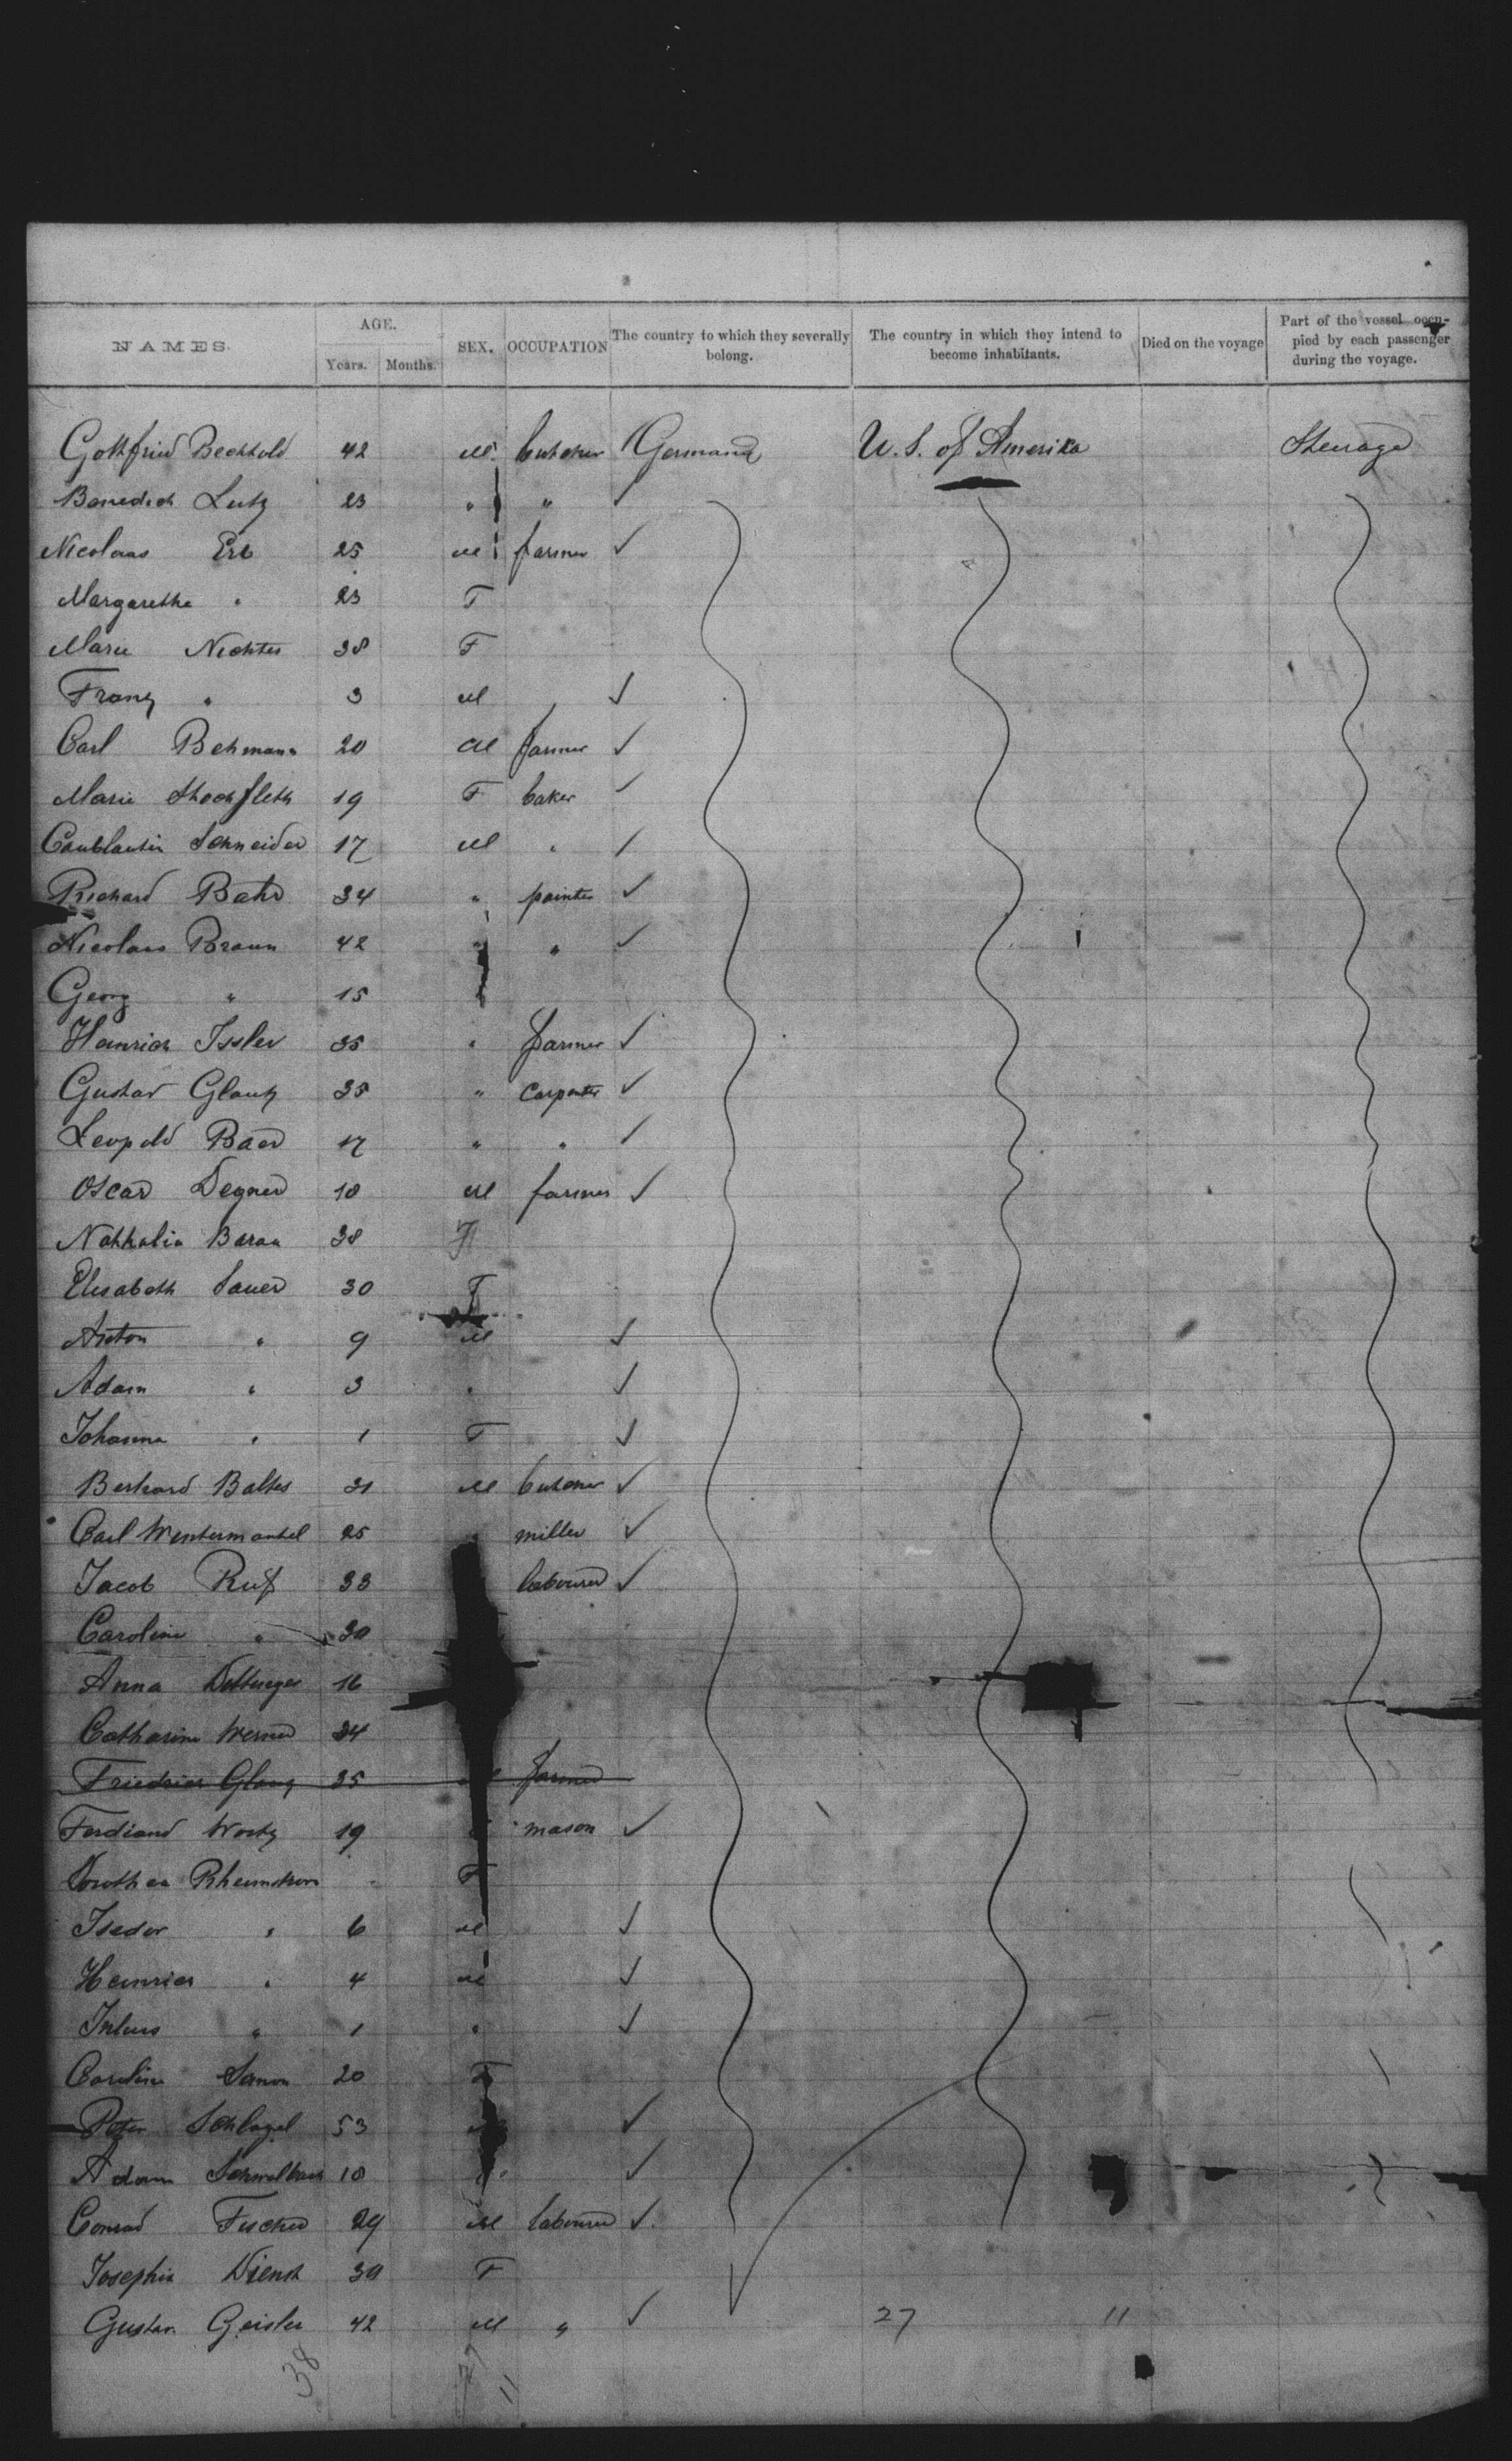 NAMES. AGE. Years. Months. SEX. OCCUPATION The country to which they severally belong. The country in which they intend to become inhabitants. Died on the voyage Part of the vessel occupied by each passenger during the voyage.
Gottfried Bechtold 42 M. butcher Germany U. S. of Amerika Steerage
Benedict Lutz 23 " "
Nicolaus Erb 25 M farmer
Margarethe " 23 F
Marie 38 F
Franz " 3 M
Carl Behmann 20 M farmer
Marie 19 F baker
Schneider 17 M "
Richard Bahr 34 " painter
Nicolaus Braun 42 " "
Georg " 15 "
Heinrich Issler 35 " farmer
Gustav Glantz 35 " carpenter
Leopold Baer 17 " "
Oscar Degner 18 M farmer
Nathalia Baran 38 F
Elisabeth Sauer 30 F
Anton " 9 M
Adam " 3 "
Johanna " 1 F
Bernhard Baltes 31 M butcher
Carl Wintermantel 25 " miller
Jacob Ruf 33 labourer
Caroline " 30
Anna 16
Catharine Werner 24
Friedrich Glanz 35 M farmer
Ferdinand 19 mason
Dorothea Rheinstrom F
Isedor " 6 M
Heinrich " 4 M
Julius " 1 "
Caroline 20 F
Peter Schlagel 53
Adam Schwalbach 18
Conrad Fischer 29 M labourer
Josephin Dienst 30 F
Gustav Geisler 42 M " 27 11
38 11